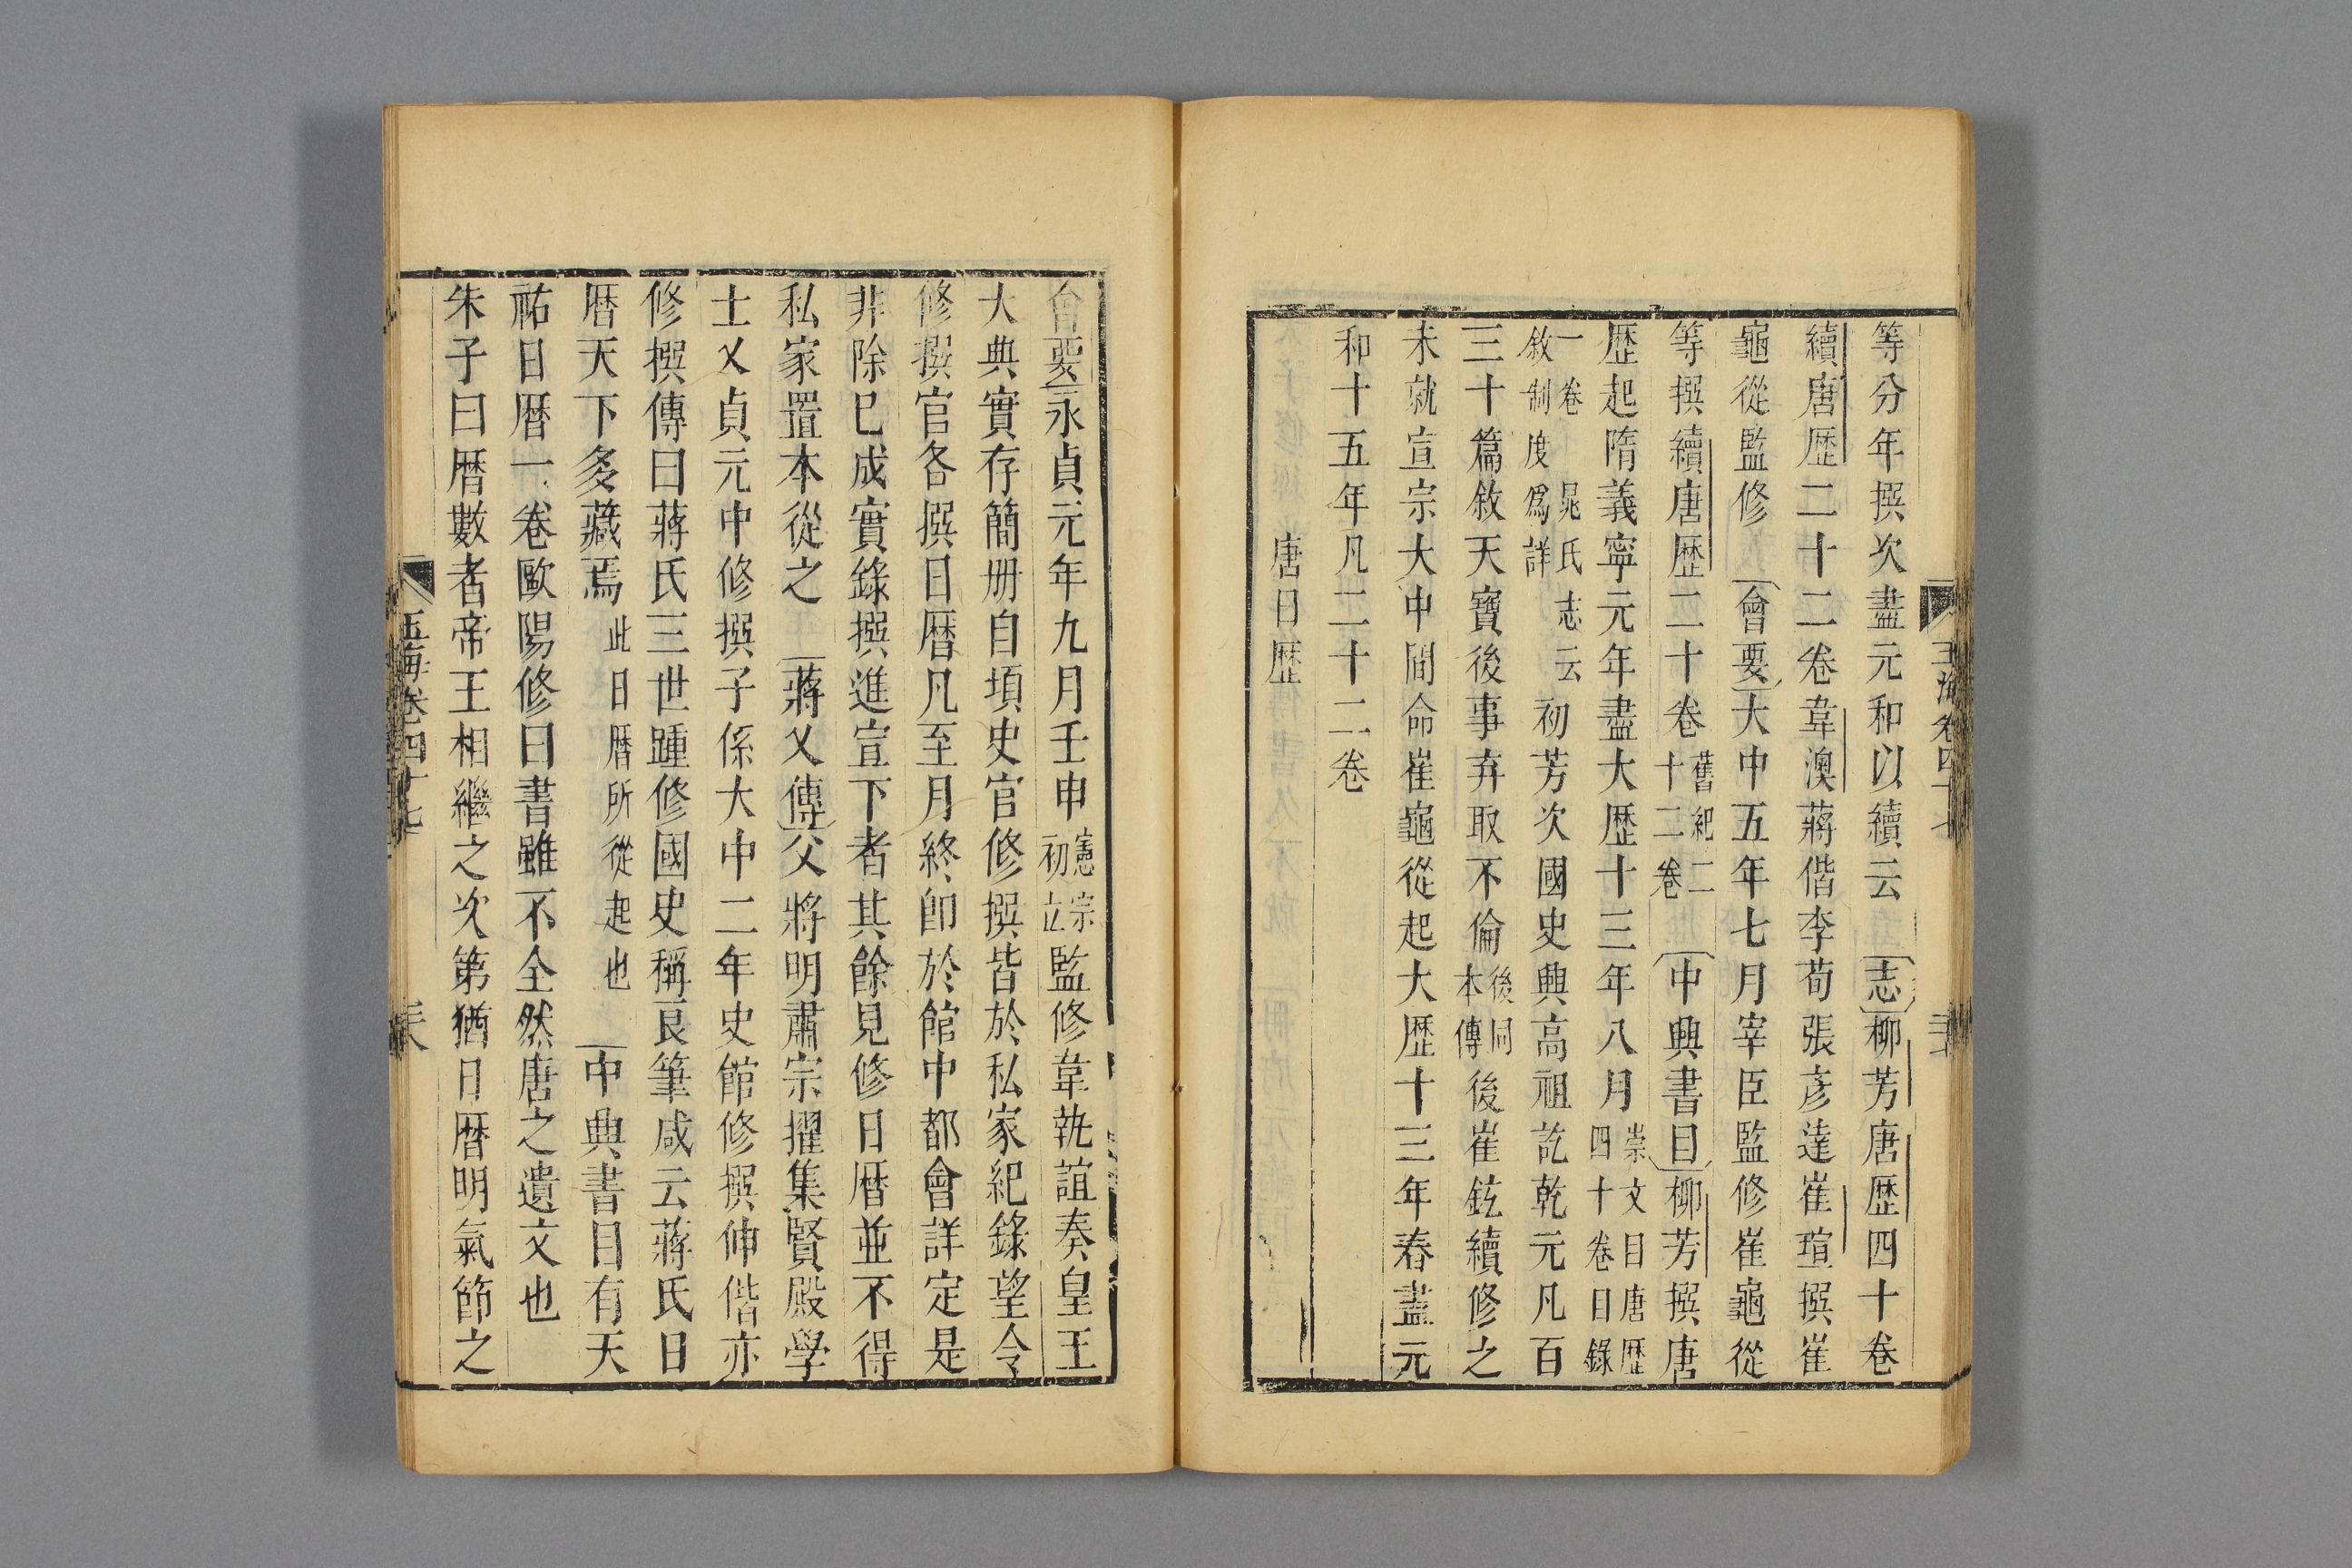 等分年撰次盡元和以續云志柳芳唐歷四十卷
續唐歷二十二卷韋澳蔣偕李荀張彥遠崔瑄撰崔
龜從監修會要大中五年七月宰臣監修崔龜從
等撰續唐歷二十卷舊紀二十二卷中興書目柳芳撰唐
歷起隋義寧元年盡大歷十三年八月崇文目唐歷四十卷目錄
一卷晁氏志云敘制度爲詳初芳次國史興高祖訖乾元凡百
三十篇敘天寶後事弃取不倫後同本傳後崔鉉續修之
未就宣宗大中間命崔龜從起大歷十三年春盡元
和十五年凡二十二卷
唐日歷
會要永貞元年九月壬申憲宗初立監修韋執誼奏皇王
大典實存簡冊自頃史官修撰皆於私家紀錄望令
修撰官各撰日曆凡至月終卽於館中都會詳定是
非除已成實錄撰進宣下者其餘見修日曆並不得
私家置本從之蔣乂傳父將明肅宗擢集賢殿學
士乂貞元中修撰子係大中二年史館修撰伸偕亦
修撰傳曰蔣氏三世踵修國史稱良筆咸云蔣氏日
曆天下多藏焉此日曆所從起也中興書目有天
祐日曆一卷歐陽修曰書雖不全然唐之遺文也
朱子曰曆數者帝王相繼之次第猶日曆明氣節之
玉海卷四十七